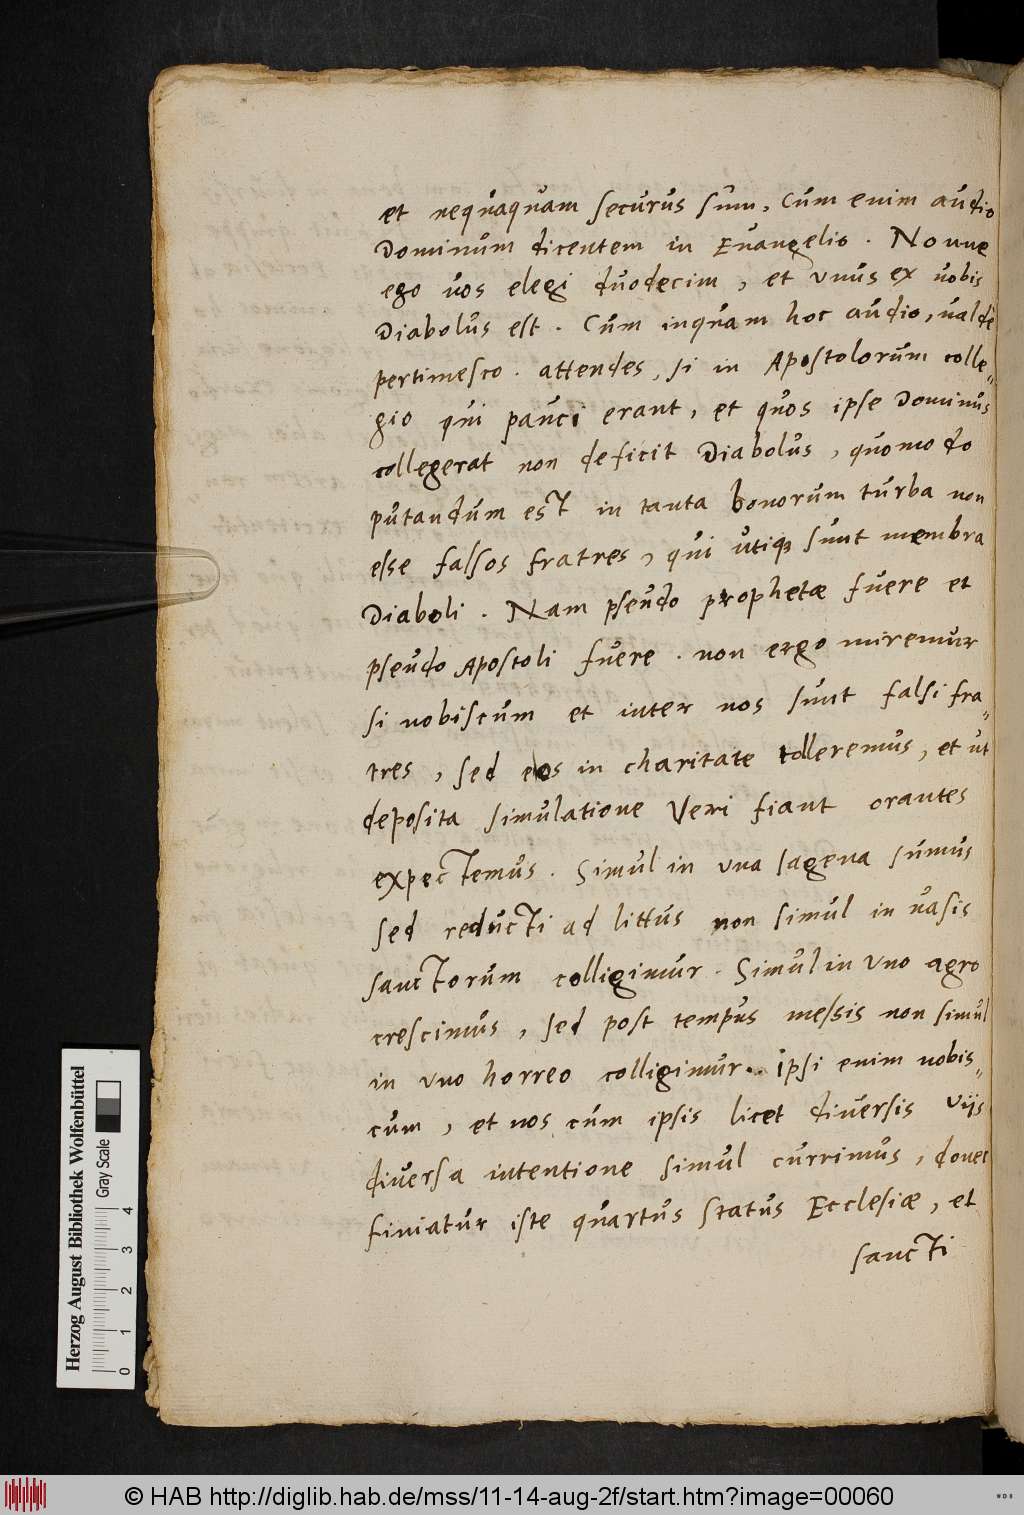 et nequaquam securus sum, Cum enim audio
Dominum dicentem in Euangelio. Nonne
ego uos elegi duodecim, et vnus ex uobis
Diabolus est. Cum inquam hoc audio, ualde
pertimesco. attendes, si in Apostolorum colle„
gio qui pauci erant, et quos ipse Dominus
collegerat non deficit Diabolus, quomodo
putandum est in tanta bonorum turba non
esse falsos fratres, qui utiq; sunt membra
Diaboli. Nam pseudo prophetæ fuere et
pseudo Apostoli fuere. non ergo miremur
si nobiscum et inter nos sunt falsi fra„
tres, sed eos in charitate tolleremus, et ut
deposita simulatione Veri fiant orantes
expectemus. Simul in vna sagena sumus
sed reducti ad littus non simul in uasis
sanctorum colligimur. Simul in vno agro
crescimus, sed post tempus messis non simul
in vno horreo colligimur. ipsi enim nobis„
cum, et nos cum ipsis licet diuersis viis
diuersa intentione simul currimus, donec
finiatur iste quartus status Ecclesiæ, et
sancti
Herzog August Bibliothek Wolfenbüttel
Gray Scale
0 1 2 3 4
© HAB http://diglib.hab.de/mss/11-14-aug-2f/start.htm?image=00060